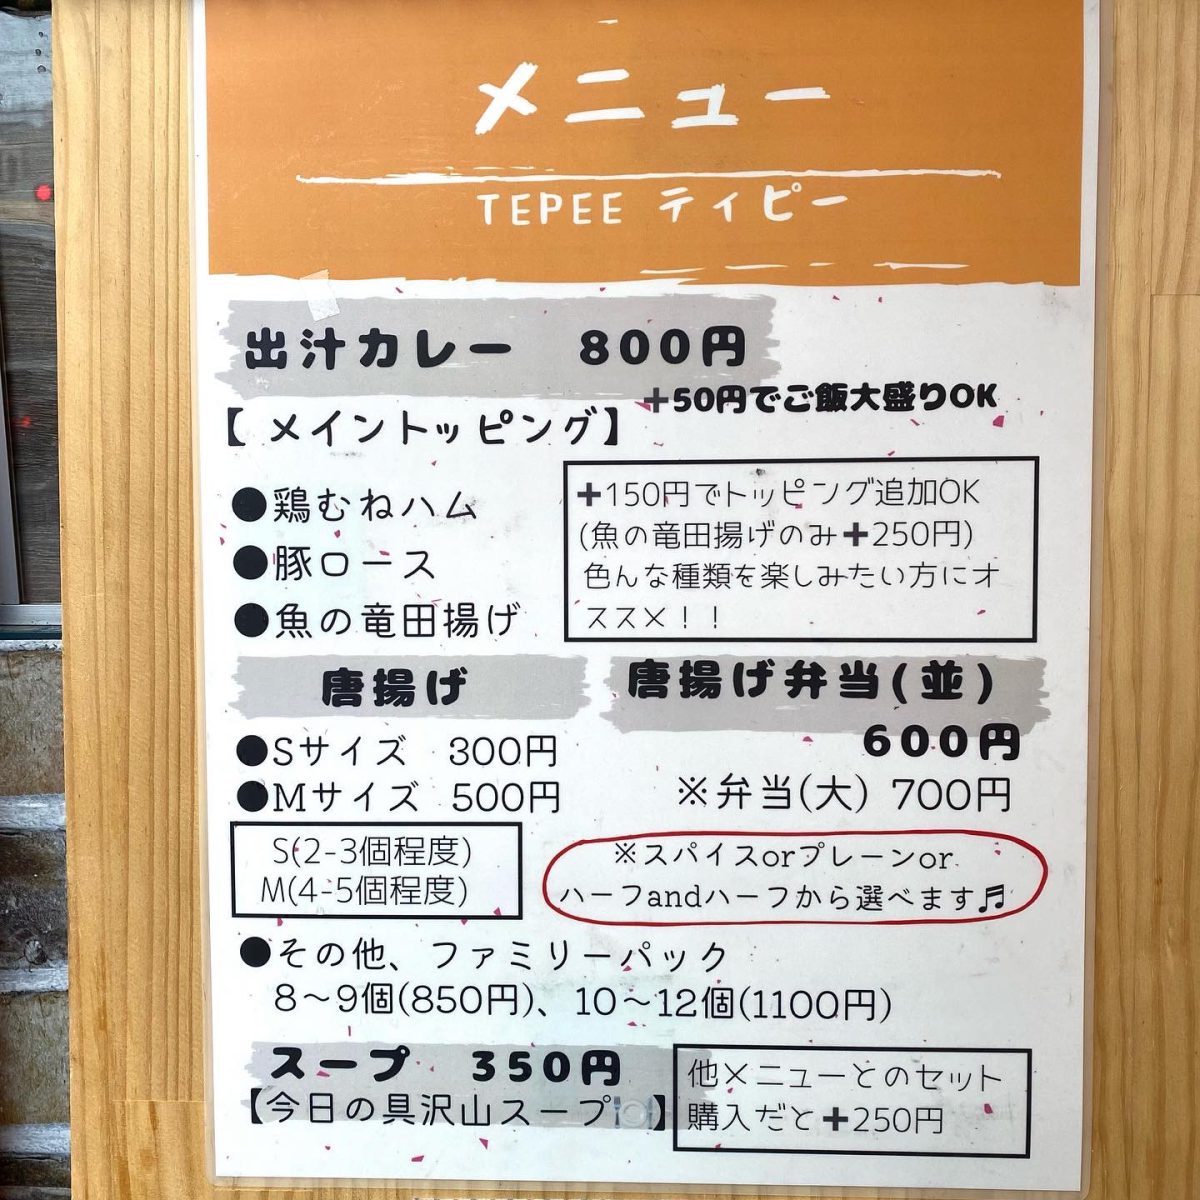 メニュー
TEPEE ティピー
出汁カレー 800円
+50円でご飯大盛りOK
【 メイントッピング】
●鶏むねハム
●豚ロース
●魚の竜田揚げ
+150円でトッピング追加OK
(魚の竜田揚げのみ+250円)
色んな種類を楽しみたい方にオ
ススメ！！
唐揚げ
●Sサイズ 300円
●Mサイズ 500円
S(2-3個程度)
M(4-5個程度)
唐揚げ弁当(並)
600円
※弁当(大) 700円
※スパイスorプレーンor
ハーフandハーフから選べます♬
●その他、ファミリーパック
8〜9個(850円)、10〜12個(1100円)
スープ 350円
【今日の具沢山スープ🍽】
他メニューとのセット
購入だと+250円